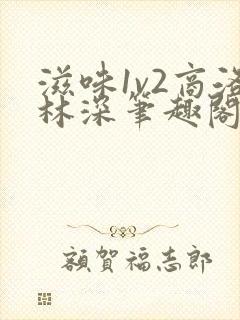 滋味1v2高洛
林深筆趣閣
額賀福志郎